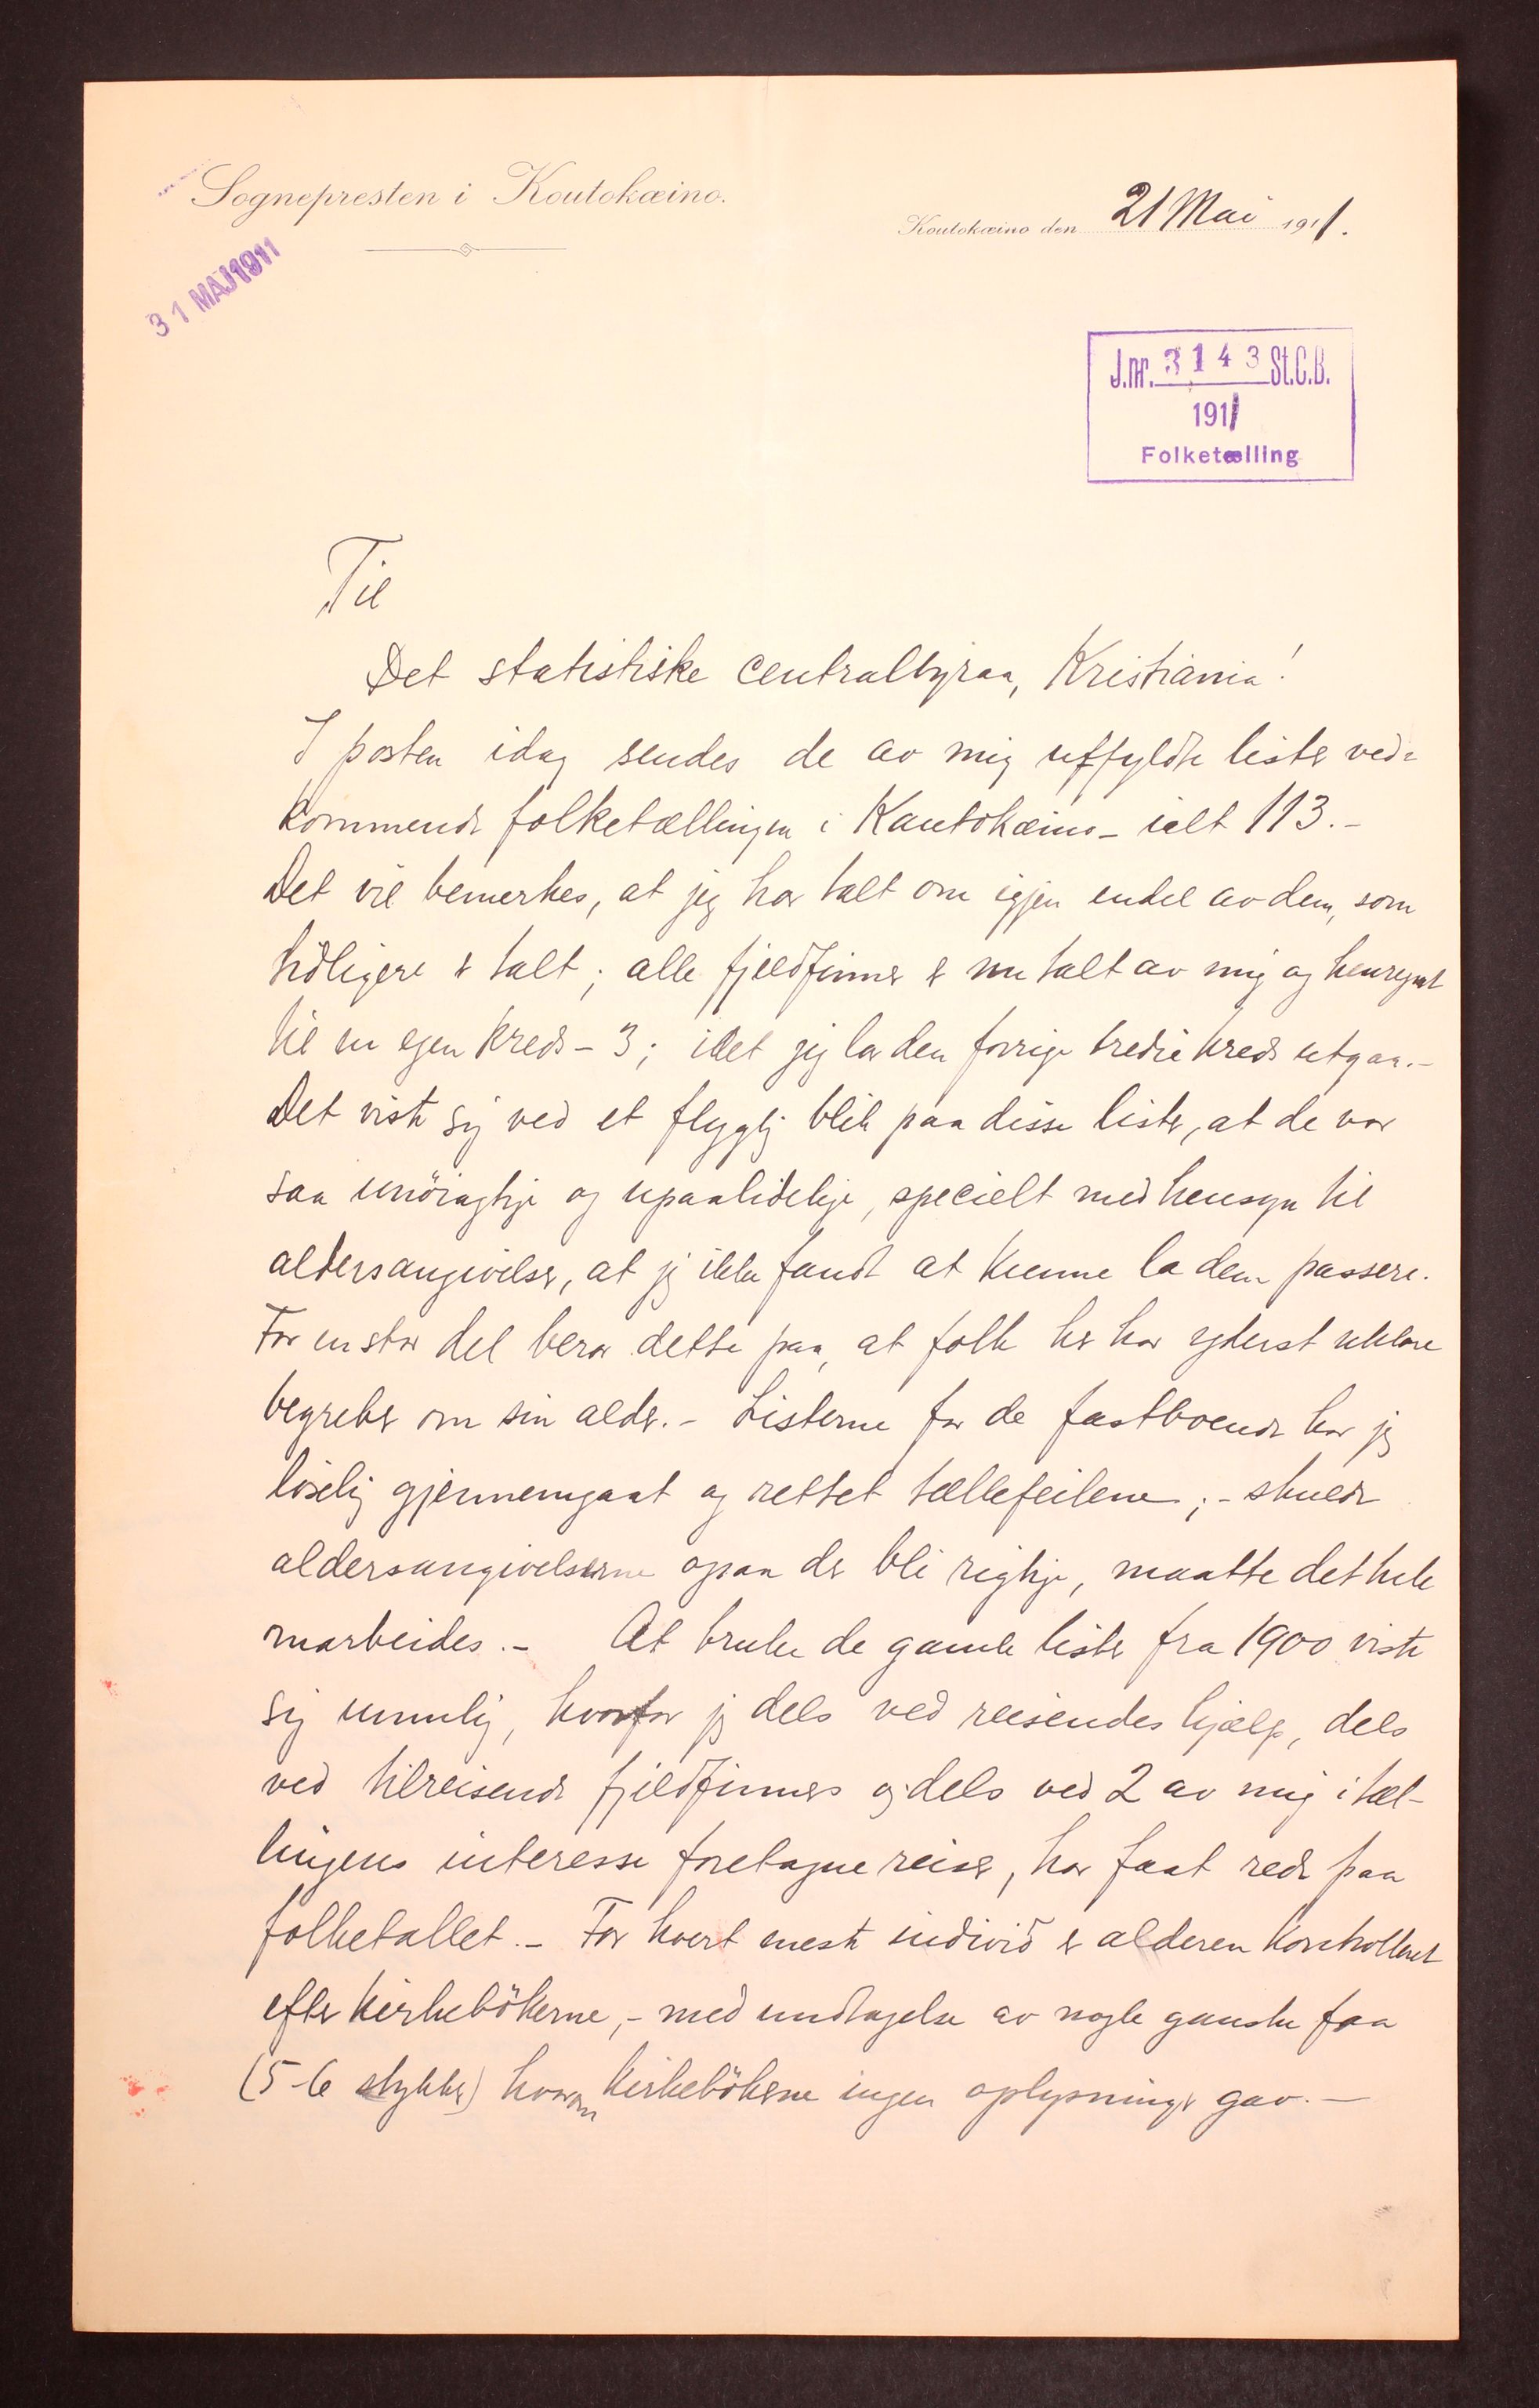 Sognepresten i Koutokæino.
Koutokæino den 21 Mai 1911.
31 MAJ 1911
J.nr. 3143 St.C.B.
1911
Folketælling
Til
Det statistiske centralbyraa, Kristiania!
I posten idag sendes de av mig utfyldte lister ved-
kommende folketællingen i Kautokæino - ialt 113.-
Det vil bemerkes, at jeg har talt om igjen endel av dem, som
tidligere er talt; alle fjeldfinner er nu talt av mig og henregnet
til en egen kreds - 3; idet jeg lar den forrige tredie kreds utgaa.-
Det viste sig ved et flygtig blik paa disse lister, at de var
saa unöiagtige og upaalidelige, specielt med hensyn til
aldersangivelser, at jeg ikke fandt at kunne la dem passere.
For en stor del beror dette paa, at folk her har yderst uklare
begreber om sin alder.- Listerne for de fastboende har jeg
löselig gjennemgaat og rettet tællefeilene;- skulde
aldersangivelserne ogsaa der bli rigtige, maatte det hele
omarbeides.- At bruke de gamle lister fra 1900 viste
sig umulig, hvorfor jeg dels ved reisendes hjælp, dels
ved tilreisende fjeldfinner og dels ved 2 av mig i tæl-
lingens interesse foretagne reiser, har faat rede paa
folketallet.- For hvert eneste individ er alderen kontrolleret
efter kirkebökerne,- med undtagelse av nogle ganske faa
(5-6 stykker) hvorom kirkebökerne ingen oplysninger gav.-